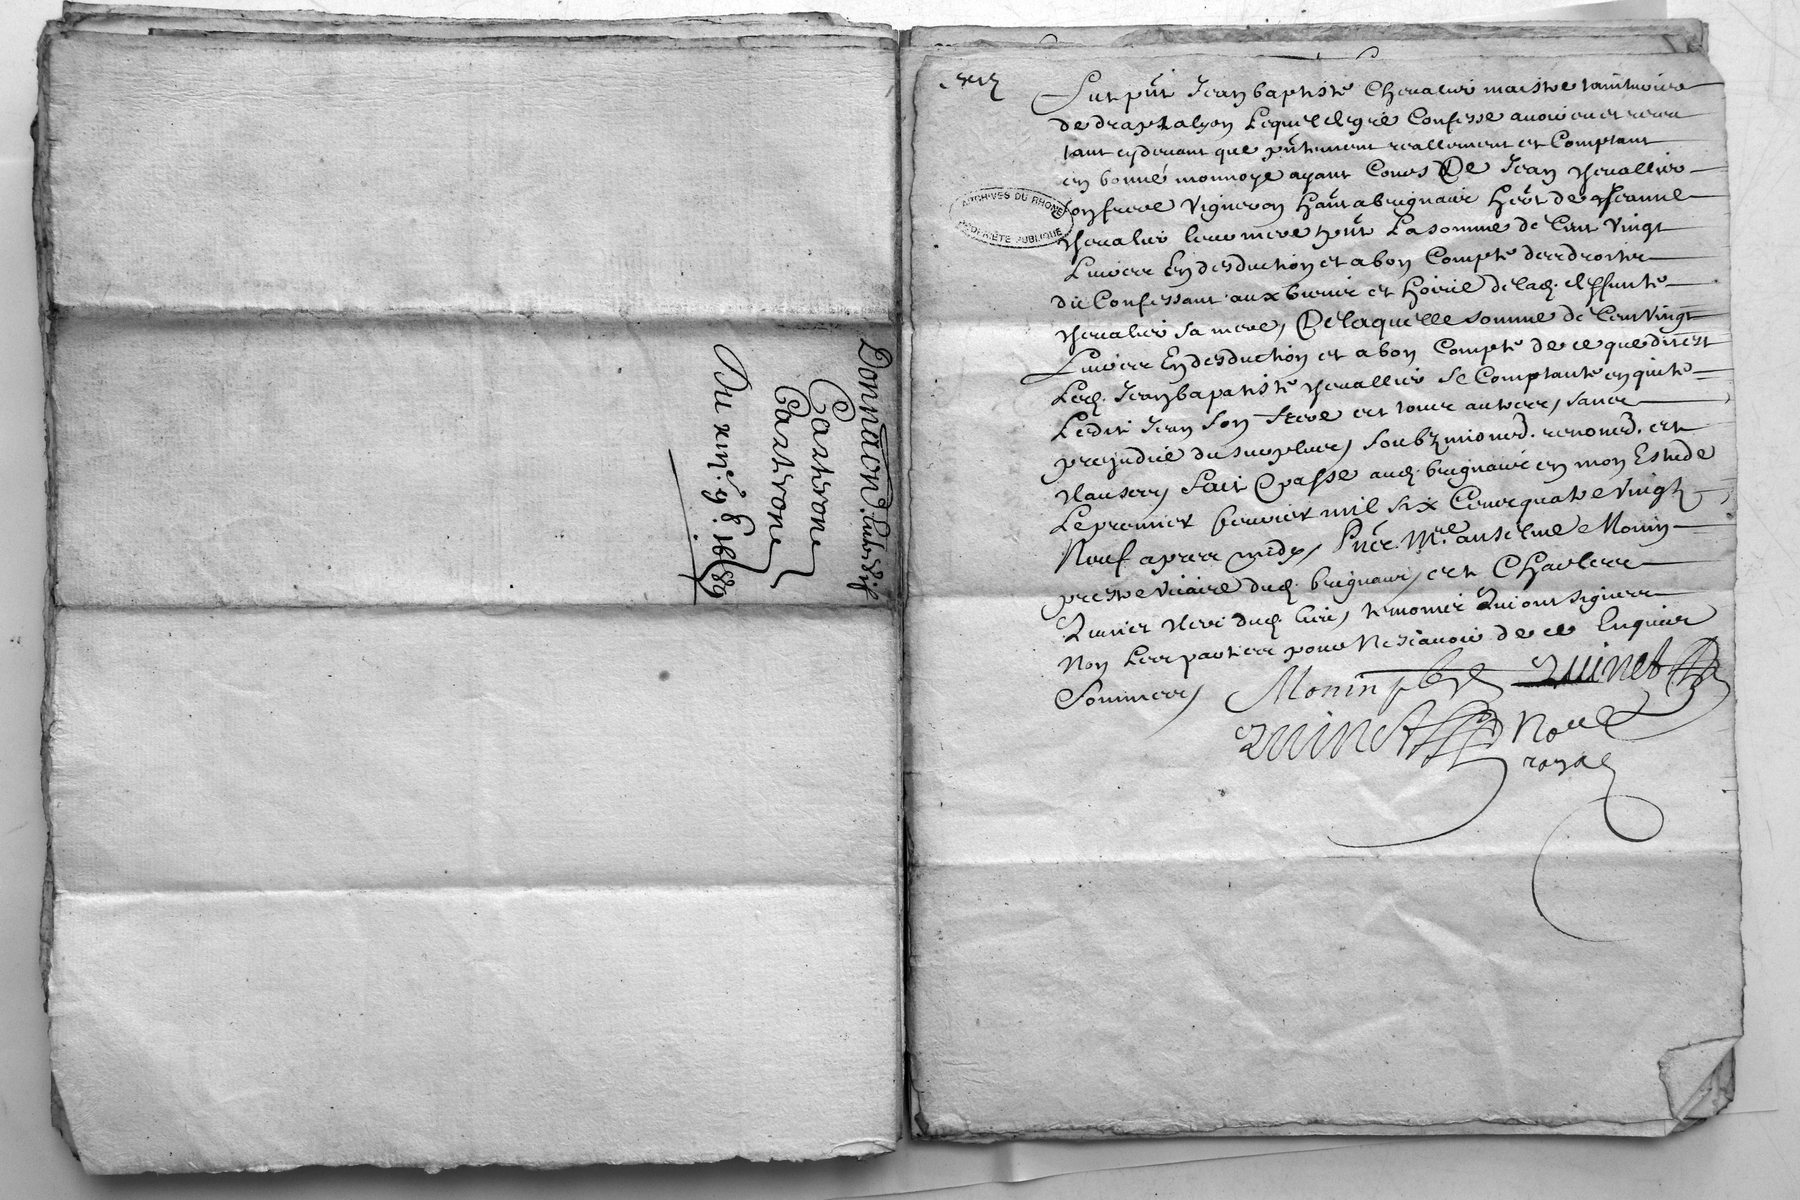 Donnaōn
Cartrone
Cartrone
Du xiiij 9bre 1689
ARCHIVES DU RHÔNE
PROPRIÉTÉ PUBLIQUE
Fut pñt Jean baptiste Chevalier maistre tainturier
de drap Lequel de gré Confesse avoir eu et receu
tant cydevant que pñtement reallement et Comptant
en bonne monnoye ayant Cours De Jean chevallier
son frere Vigneron hãnt a brignais Hert de Jeanne
chevalier leur mere pñt La somme de Cent Vingt
Livres En desduction et a bon Compte des droits
du Confessant aux biens et hoirie de lad. deffunte
chevalier sa mere, De laquelle somme de Cent Vingt
Livres En desduction et a bon Compte de ce que dit est
Led. Jean bapatiste chevallier se Comptante en quitte
Ledit Jean son frere et tous autres, sans
prejudice du surplus, soubz mioned. renoned. et
clauses, fait & passé aud. brignais en mon Estude
Le premier febvrier mil six Cent quatre Vingt
Neuf apres midy, Pñts Mre anselme Monin
prestre Vicaire dud. brignais, et Charles
Quinet clerc dud. lieu, temoins Qui ont signés
Non Les parties pour Ne sçavoir de ce Enquis
Sommées,
Monin pbre Quinet
Quinet No.re
royal